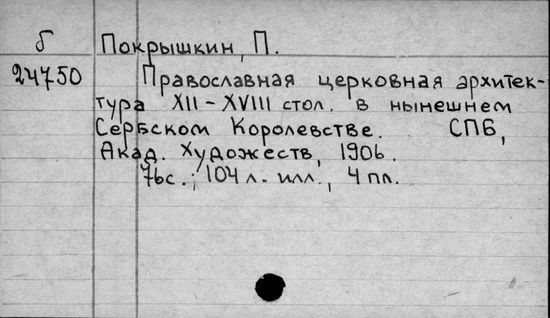 б Покрышкин, П.
24750 Православная церковная архитек-
тура XII - XVIII стол. в нынешнем
Сербском Королевстве. СПб,
Акад. Художеств, 1906.
76с.; 104 л. илл., 4 пл.